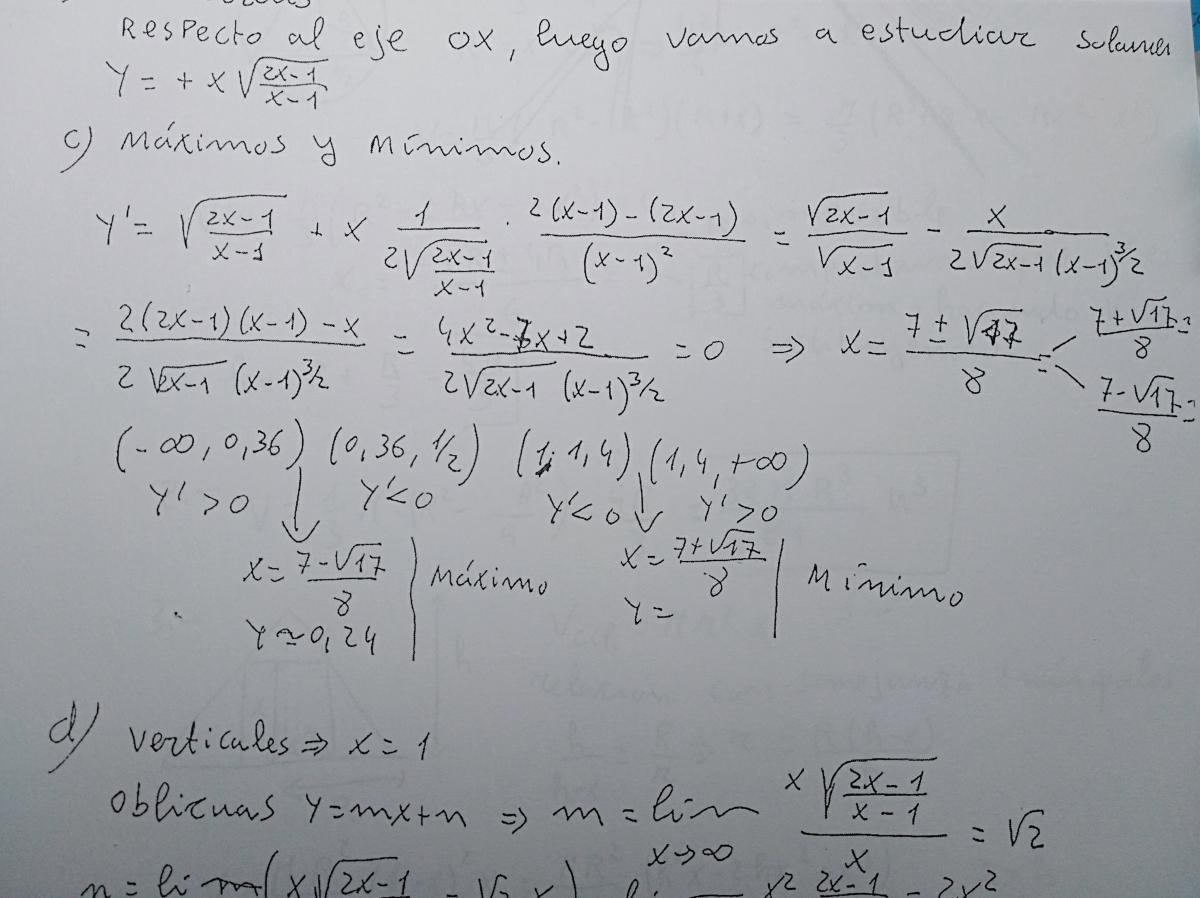 Respecto al eje ox, luego vamos a estudiar
Y = + x √((2x-1)/(x-1))
c) Máximos y Mínimos.
Y' = √((2x-1)/(x-1)) + x 1/(2√((2x-1)/(x-1))) · (2(x-1)-(2x-1))/(x-1)² = √(2x-1)/√(x-1) - x/(2√(2x-1) (x-1)^(3/2))
= (2(2x-1)(x-1)-x)/(2√(2x-1) (x-1)^(3/2)) = (4x²-7x+2)/(2√(2x-1) (x-1)^(3/2)) = 0 ⇒ x = (7±√17)/8 = (7+√17)/8 =
(7-√17)/8 =
(-∞, 0,36) (0,36, 1/2) (1, 1,4) (1,4, +∞)
Y'>0 Y'<0 Y'<0 Y'>0
x = (7-√17)/8 | Máximo x = (7+√17)/8 | Mínimo
Y ≃ 0,24 Y =
d) Verticales ⇒ x = 1
Oblicuas Y = mx+n ⇒ m = lim x→∞ (x√((2x-1)/(x-1)))/x = √2